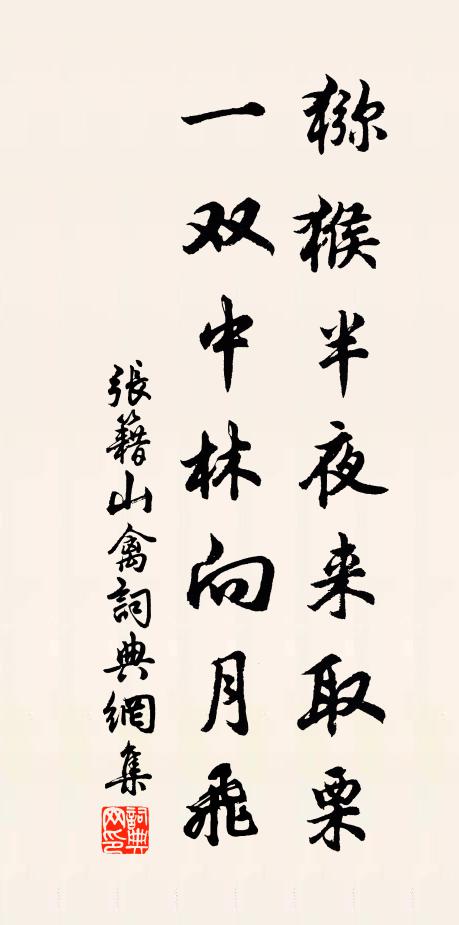 猕猴半夜来取栗
一双中林向月飛
張籍山禽詞典網集
詞典网印